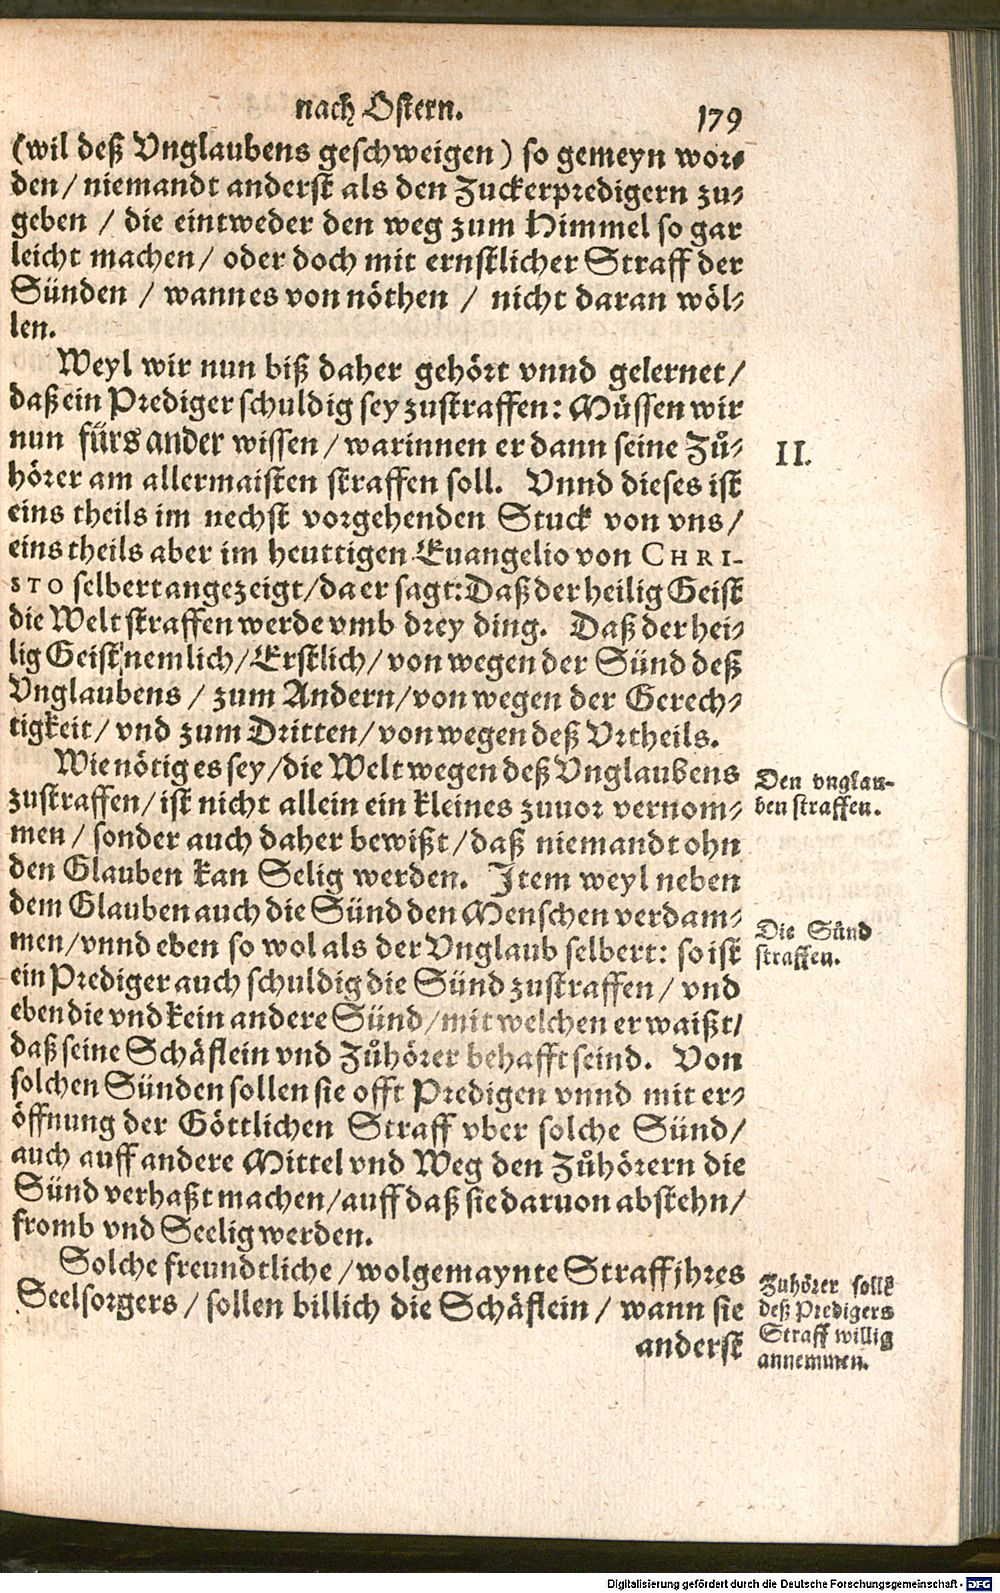 nach Ostern.
179
(wil deß Vnglaubens geschweigen) so gemeyn wor-
den/ niemandt anderst als den Zuckerpredigern zu-
geben / die eintweder den weg zum Himmel so gar
leicht machen/ oder doch mit ernstlicher Straff der
Sünden / wann es von nöthen / nicht daran wöl-
len.
Weyl wir nun biß daher gehört vnnd gelernet/
daß ein Prediger schuldig sey zustraffen: Müssen wir
nun fürs ander wissen/ warinnen er dann seine Zů-
II.
hörer am allermaisten straffen soll. Vnnd dieses ist
eins theils im nechst vorgehenden Stuck von vns/
eins theils aber im heuttigen Euangelio von CHRI-
STO selbert angezeigt/ da er sagt: Daß der heilig Geist
die Welt straffen werde vmb drey ding. Daß der hei-
lig Geist nemlich/ Erstlich/ von wegen der Sünd deß
Vnglaubens / zum Andern/ von wegen der Gerech-
tigkeit/ vnd zum Dritten/ von wegen deß Vrtheils.
Wie nötig es sey/ die Welt wegen deß Vnglaubens
Den vnglau-
zustraffen/ ist nicht allein ein kleines zuuor vernom-
ben straffen.
men/ sonder auch daher bewißt/ daß niemandt ohn
den Glauben kan Selig werden. Item weyl neben
dem Glauben auch die Sünd den Menschen verdam-
Die Sünd
men/ vnnd eben so wol als der Vnglaub selbert: so ist
straffen.
ein Prediger auch schuldig die Sünd zustraffen/ vnd
eben die vnd kein andere Sünd/ mit welchen er waißt/
daß seine Schäflein vnd Zůhörer behafft seind. Von
solchen Sünden sollen sie offt Predigen vnnd mit er-
öffnung der Göttlichen Straff vber solche Sünd/
auch auff andere Mittel vnd Weg den Zůhörern die
Sünd verhaßt machen/ auff daß sie daruon abstehn/
fromb vnd Seelig werden.
Solche freundtliche/ wolgemaynte Straff jhres
Zuhörer solle
Seelsorgers / sollen billich die Schäflein / wann sie
deß Predigers
Straff willig
anderst
annemmen.
Digitalisierung gefördert durch die Deutsche Forschungsgemeinschaft - DFG